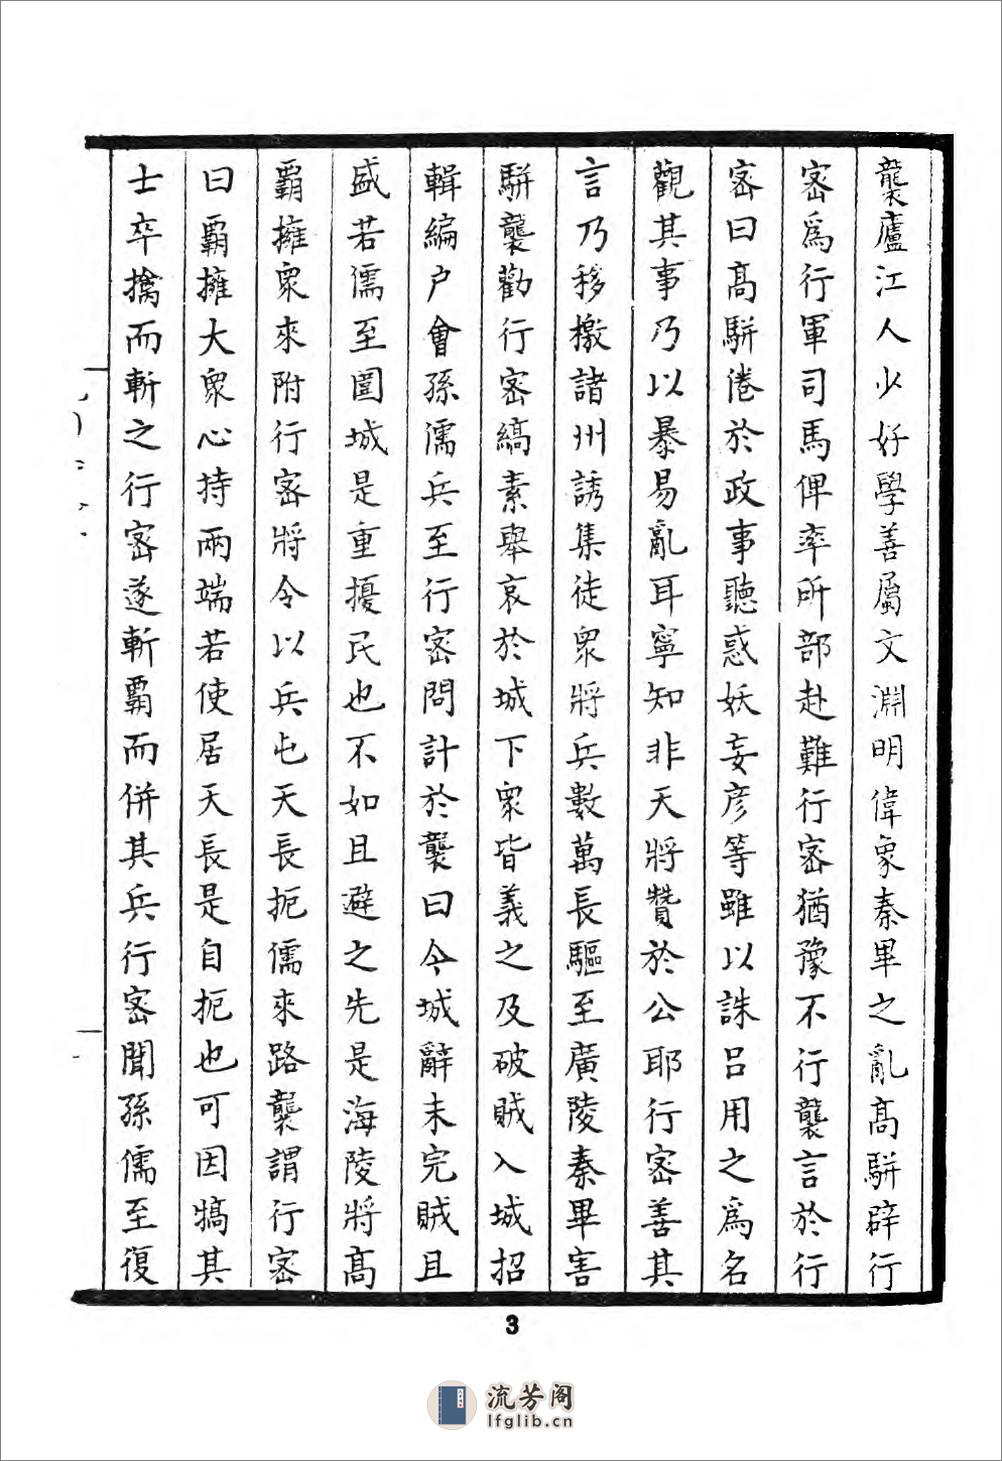 襲廬江人少好學善屬文淵明偉象秦畢之亂髙駢辟行
宻爲行軍司馬俾率所部赴難行宻猶豫不行襲言於行
宻曰髙駢倦於政事聽惑妖妄彦等雖以誅吕用之爲名
觀其事乃以暴易亂耳寧知非天將贊於公耶行宻善其
言乃移檄諸州誘集徒衆將兵數萬長驅至廣陵秦畢害
駢襲勸行宻縞素舉哀於城下衆皆義之及破賊入城招
輯編户會孫濡兵至行宻問計於襲曰今城辭未完賊且
盛若儒至圍城是重擾民也不如且避之先是海陵將髙
霸擁衆來附行宻將令以兵屯天長扼儒來路襲謂行宻
曰霸擁大衆心持兩端若使居天長是自扼也可因犒其
士卒擒而斬之行宻遂斬霸而併其兵行宻聞孫儒至復
3
流芳阁
lfglib.cn